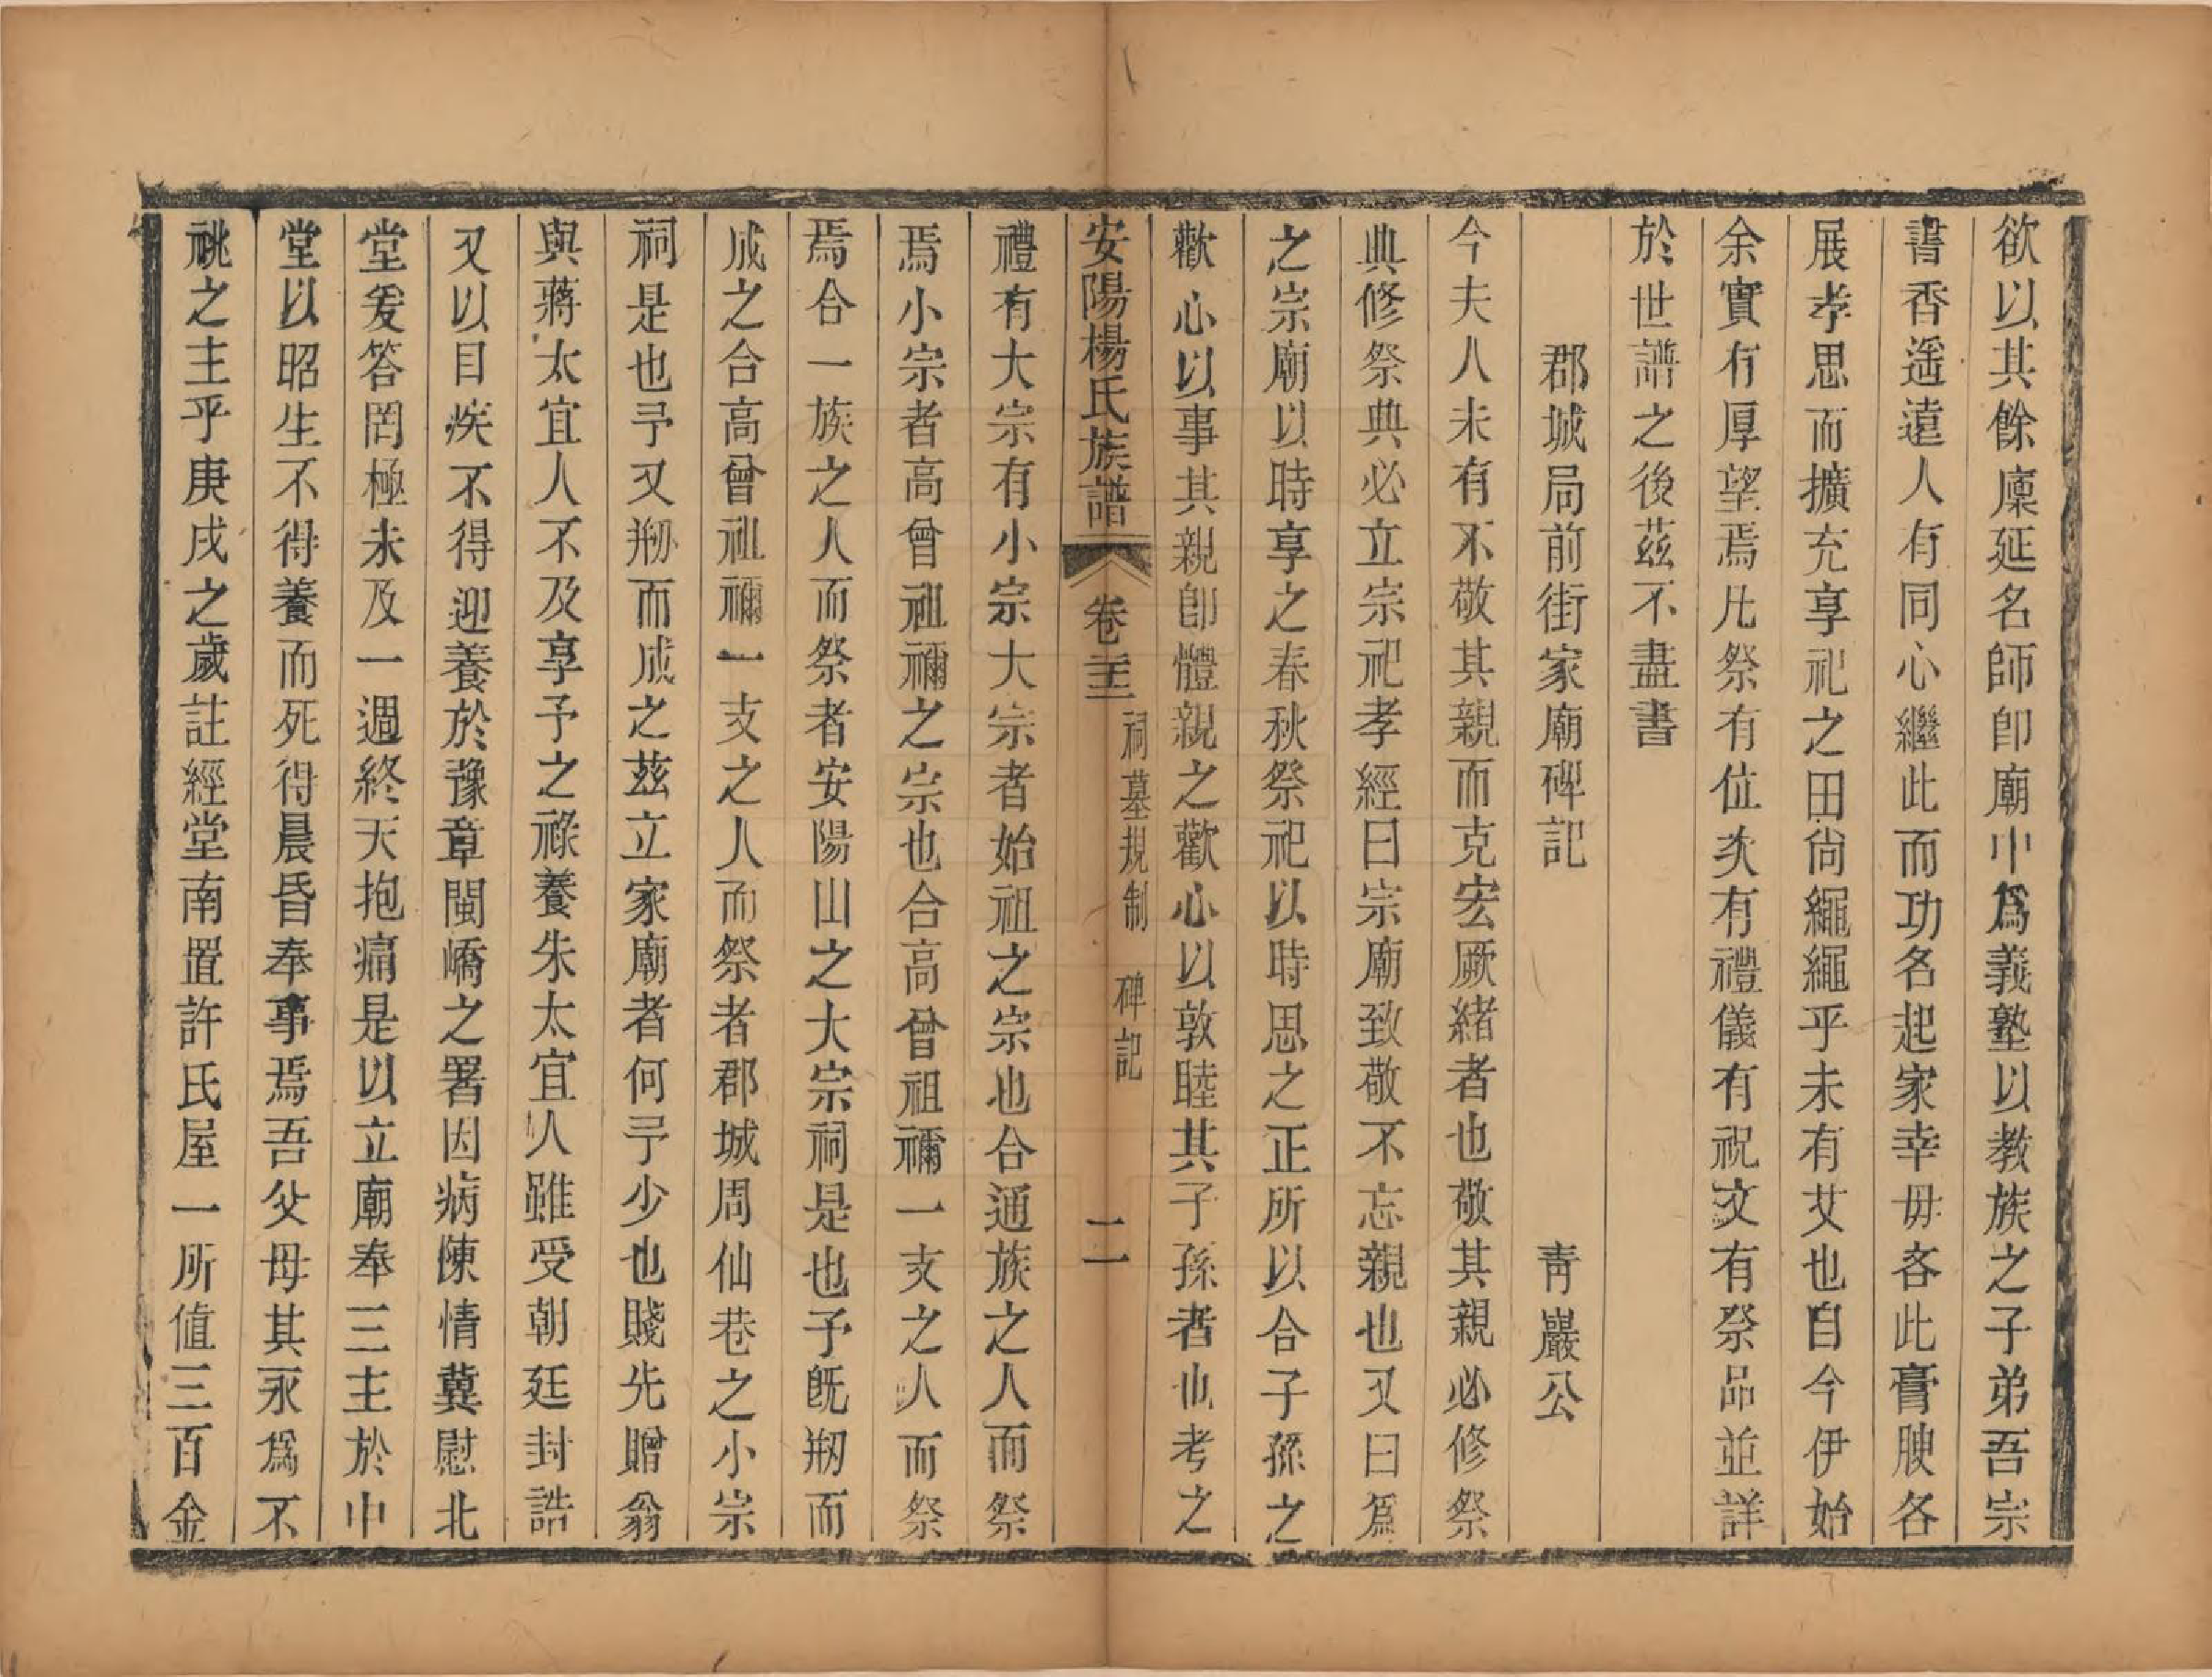 欲以其餘廩延名師卽廟中爲義塾以教族之子弟吾宗
書香遥遠人有同心繼此而功名起家幸毋吝此膏腴各
展孝思而擴充享祀之田尙繩繩乎未有艾也自今伊始
余實有厚望焉凡祭有位次有禮儀有祝文有祭品並詳
於世譜之後茲不盡書
郡城局前街家廟碑記　青巖公
今夫人未有不敬其親而克宏厥緒者也敬其親必修祭
典修祭典必立宗祀孝經曰宗廟致敬不忘親也又曰爲
之宗廟以時享之春秋祭祀以時思之正所以合子孫之
歡心以事其親卽體親之歡心以敦睦其子孫者也考之
安陽楊氏族譜　卷二十三　祠墓規制　碑記　二
禮有大宗有小宗大宗者始祖之宗也合通族之人而祭
焉小宗者高曾祖禰之宗也合高曾祖禰一支之人而祭
焉合一族之人而祭者安陽山之大宗祠是也予旣剏而
成之合高曾祖禰一支之人而祭者郡城周仙巷之小宗
祠是也予又剏而成之茲立家廟者何予少也賤先贈翁
與蔣太宜人不及享予之祿養朱太宜人雖受朝廷封誥
又以目疾不得迎養於豫章閩嶠之署因病陳情冀慰北
堂爰答罔極未及一週終天抱痛是以立廟奉三主於中
堂以昭生不得養而死得晨昏奉事焉吾父母其永爲不
祧之主乎庚戌之歲註經堂南置許氏屋一所值三百金